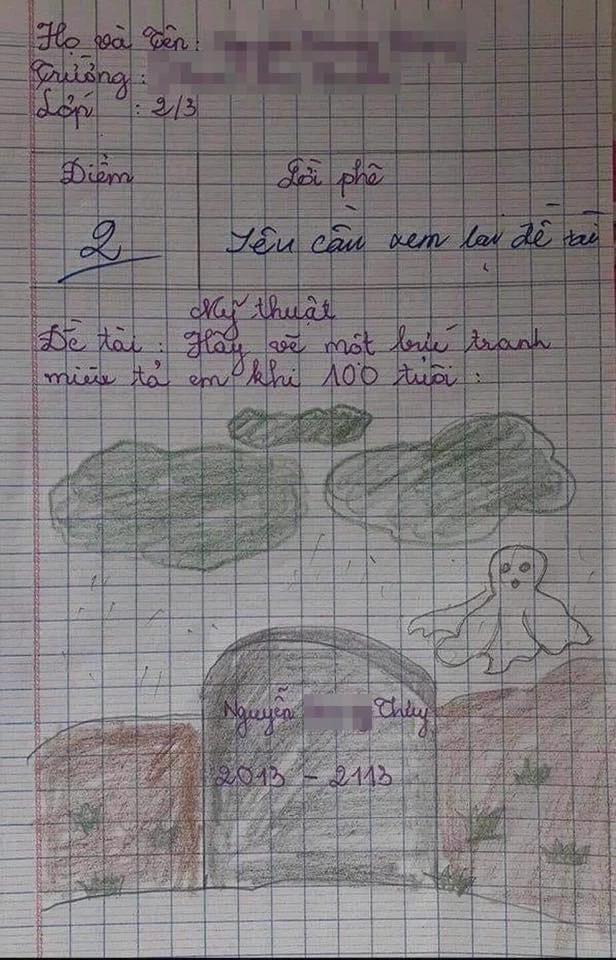 Họ và Tên :
Trường :
Lớp : 2/3
Điểm Lời phê
2 Yêu cầu xem lại đề tài
Mỹ thuật
Đề tài : Hãy vẽ một bức tranh
miêu tả em khi 100 tuổi :
Nguyễn Thúy
2013 - 2113